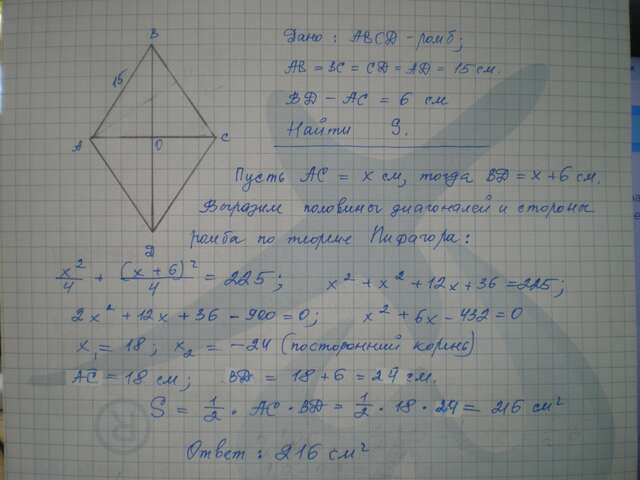 B
15
A
O
C
D
Дано: ABCD - ромб;
AB = BC = CD = AD = 15 см.
BD - AC = 6 см
Найти S.
Пусть AC = x см, тогда BD = x + 6 см.
Выразим половины диагоналей и стороны
ромба по теореме Пифагора:
x²/4 + (x + 6)²/4 = 225; x² + x² + 12x + 36 = 225;
2x² + 12x + 36 - 900 = 0; x² + 6x - 432 = 0
x₁ = 18; x₂ = -24 (посторонний корень)
AC = 18 см; BD = 18 + 6 = 24 см.
S = 1/2 · AC · BD = 1/2 · 18 · 24 = 216 см²
Ответ: 216 см²
®